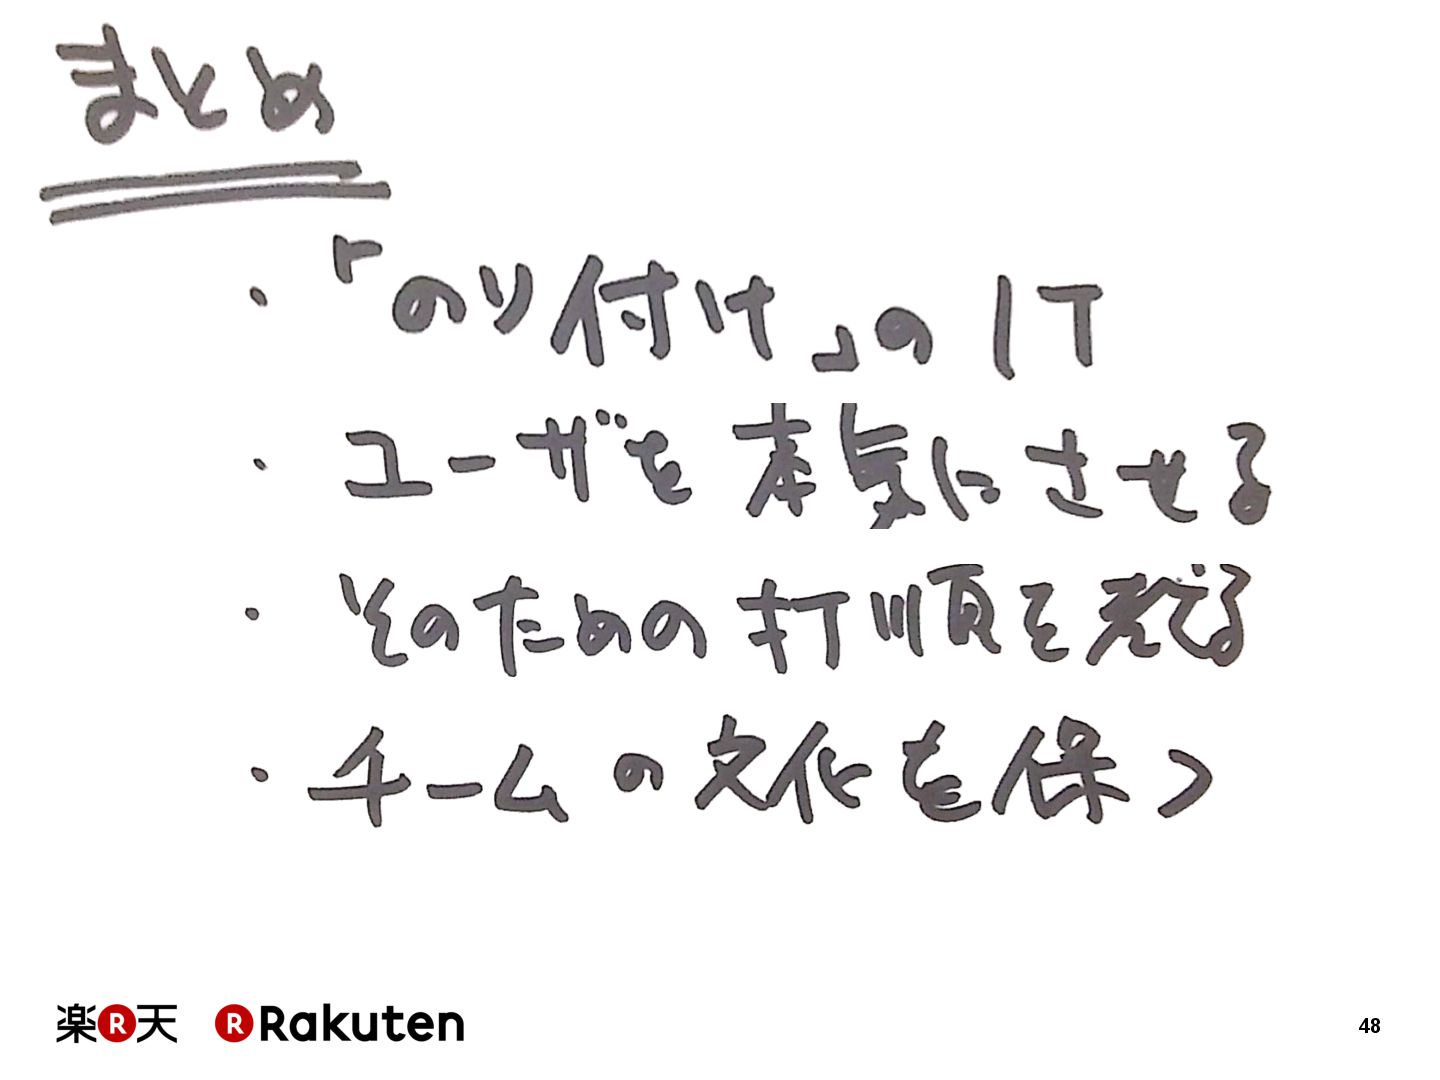 まとめ
・「のり付け」のIT
・ユーザを本気にさせる
・そのための打順を考える
・チームの文化を保つ
楽R天 R Rakuten
48